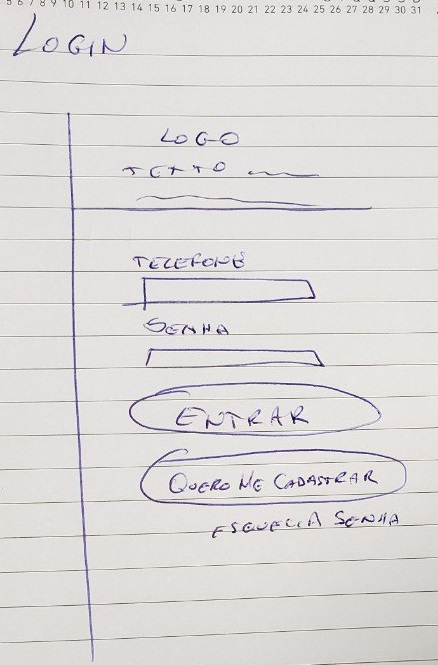 5 6 7 8 9 10 11 12 13 14 15 16 17 18 19 20 21 22 23 24 25 26 27 28 29 30 31
LOGIN
LOGO
TEXTO
TELEFONE
SENHA
ENTRAR
QUERO ME CADASTRAR
ESQUECI A SENHA